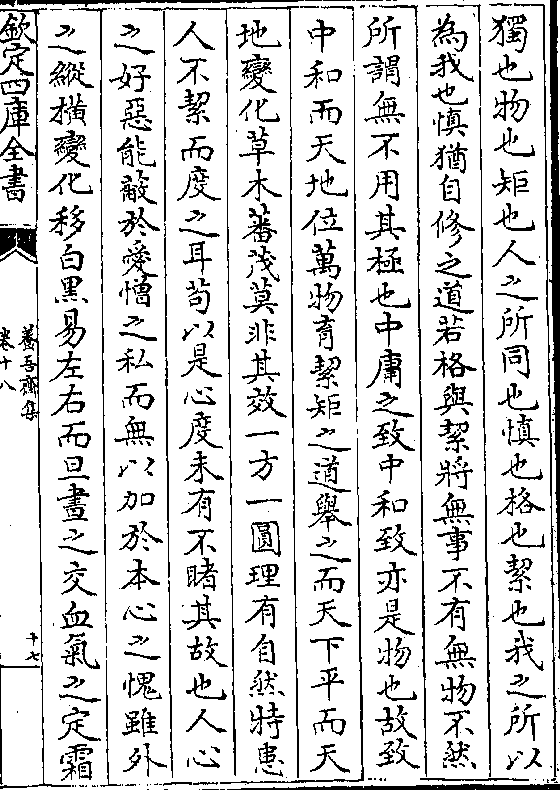 獨也物也矩也人之所同也慎也格也絜也我之所以
為我也慎猶自修之道若格與絜將無事不有無物不然
所謂無不用其極也中庸之致中和致亦是物也故致
中和而天地位萬物育絜矩之道舉之而天下平而天
地變化草木蕃茂莫非其效一方一圓理有自然特患
人不絜而度之耳苟以是心度未有不睹其故也人心
之好惡能蔽於愛憎之私而無以加於本心之愧雖外
之縱横變化移白黑易左右而旦晝之交血氣之定霜
欽定四庫全書
養吾齋集
卷十八
十七